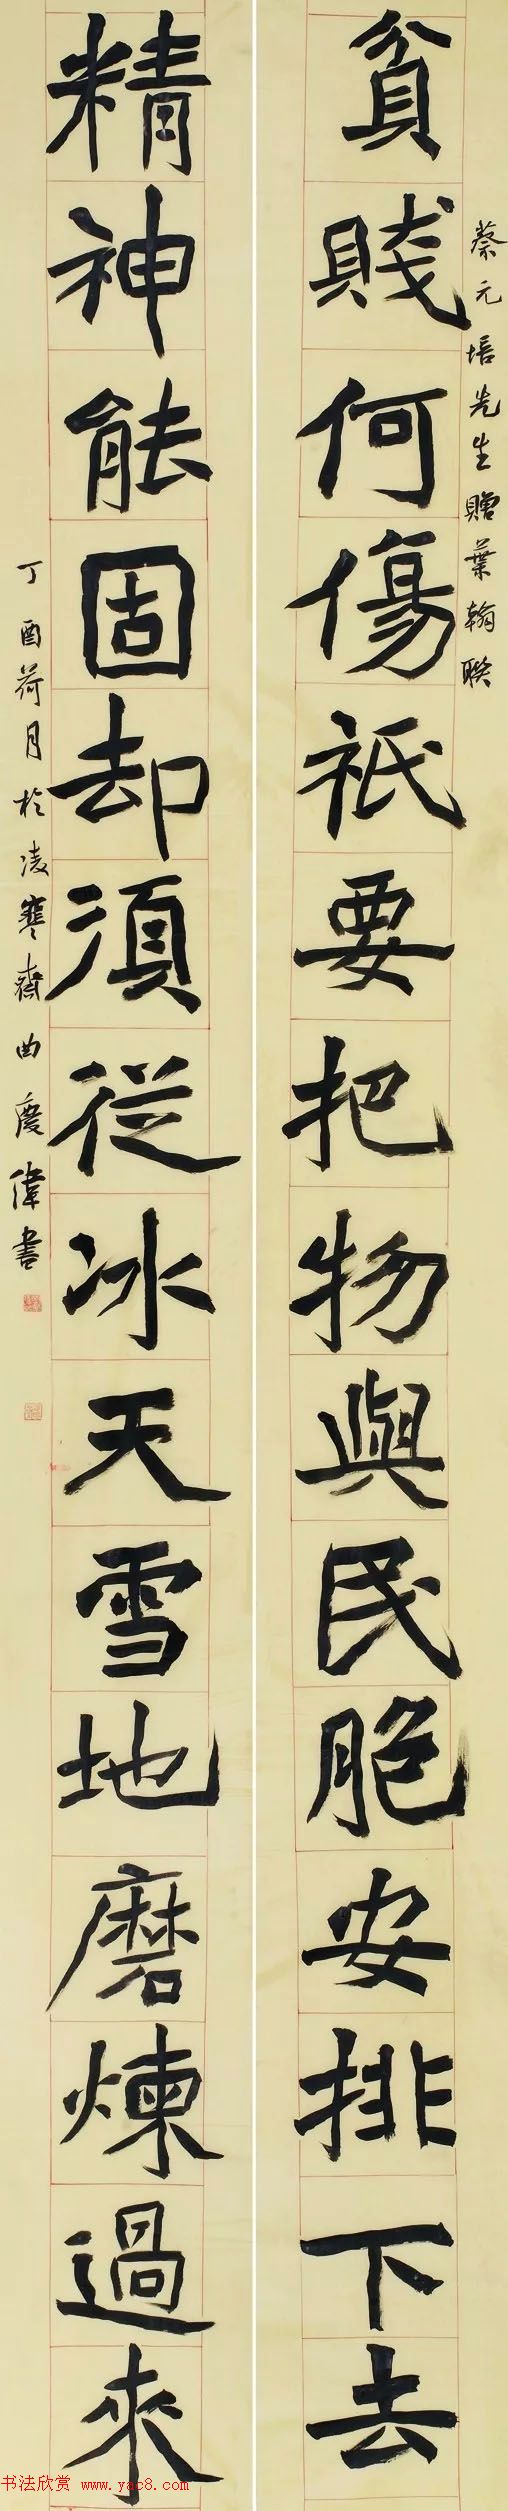 貧賤何傷祇要把物與民胞安排下去
蔡元培先生贈葉翰聯
精神能固却須從冰天雪地磨煉過來
丁酉荷月於凌寒齋曲慶偉書
书法欣赏 www.yac8.com